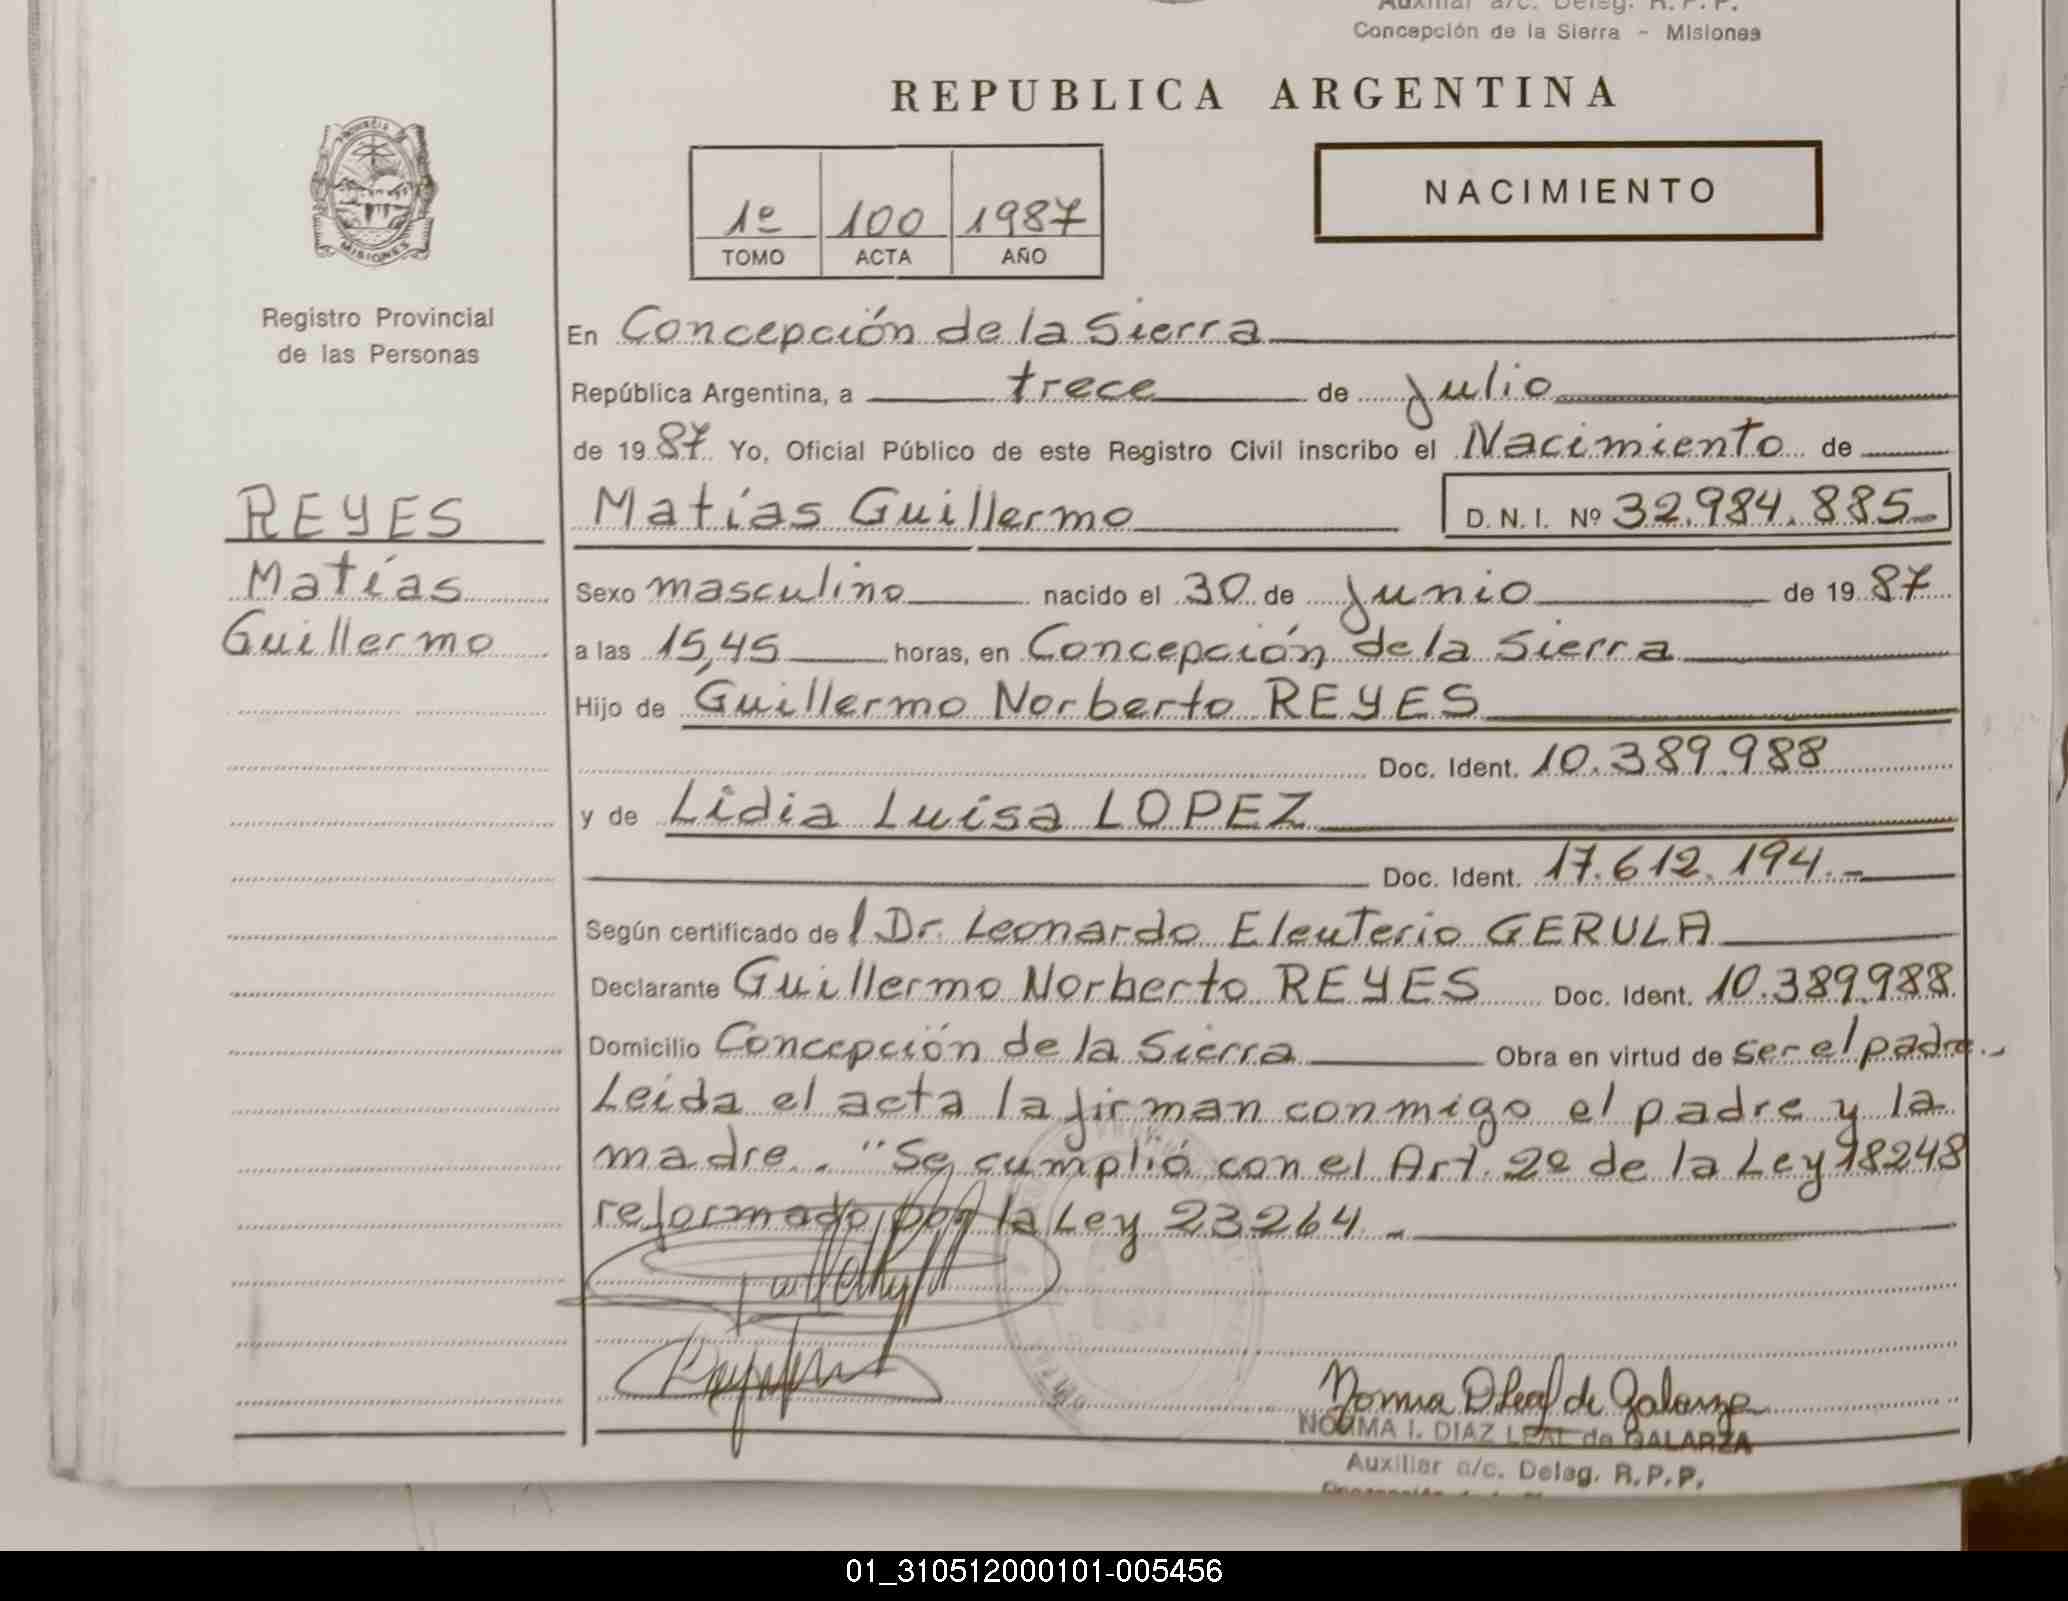 Auxiliar a/c. Deleg. R.P.P.
Concepción de la Sierra - Misiones
REPUBLICA ARGENTINA
NACIMIENTO
1º 100 1987
TOMO ACTA AÑO
PROVINCIA
MISIONES
Registro Provincial
de las Personas
REYES
Matías
Guillermo
En Concepción de la Sierra
República Argentina, a trece de Julio
de 19 87 Yo, Oficial Público de este Registro Civil inscribo el Nacimiento de
Matías Guillermo D.N.I. Nº 32.984.885-
Sexo masculino nacido el 30 de Junio de 19 87
a las 15,45 horas, en Concepción de la Sierra
Hijo de Guillermo Norberto REYES
Doc. Ident. 10.389.988
y de Lidia Luisa LOPEZ
Doc. Ident. 17.612.194.-
Según certificado de l Dr. Leonardo Eleuterio GERULA
Declarante Guillermo Norberto REYES Doc. Ident. 10.389.988
Domicilio Concepción de la Sierra Obra en virtud de ser el padre.-
Leída el acta la firman conmigo el padre y la
madre. "Se cumplió con el Art. 2º de la Ley 18248
reformado por la Ley 23264.-
Norma D Leal de Galarza
NORMA I. DIAZ LEAL de GALARZA
Auxiliar a/c. Deleg. R.P.P.
01_310512000101-005456